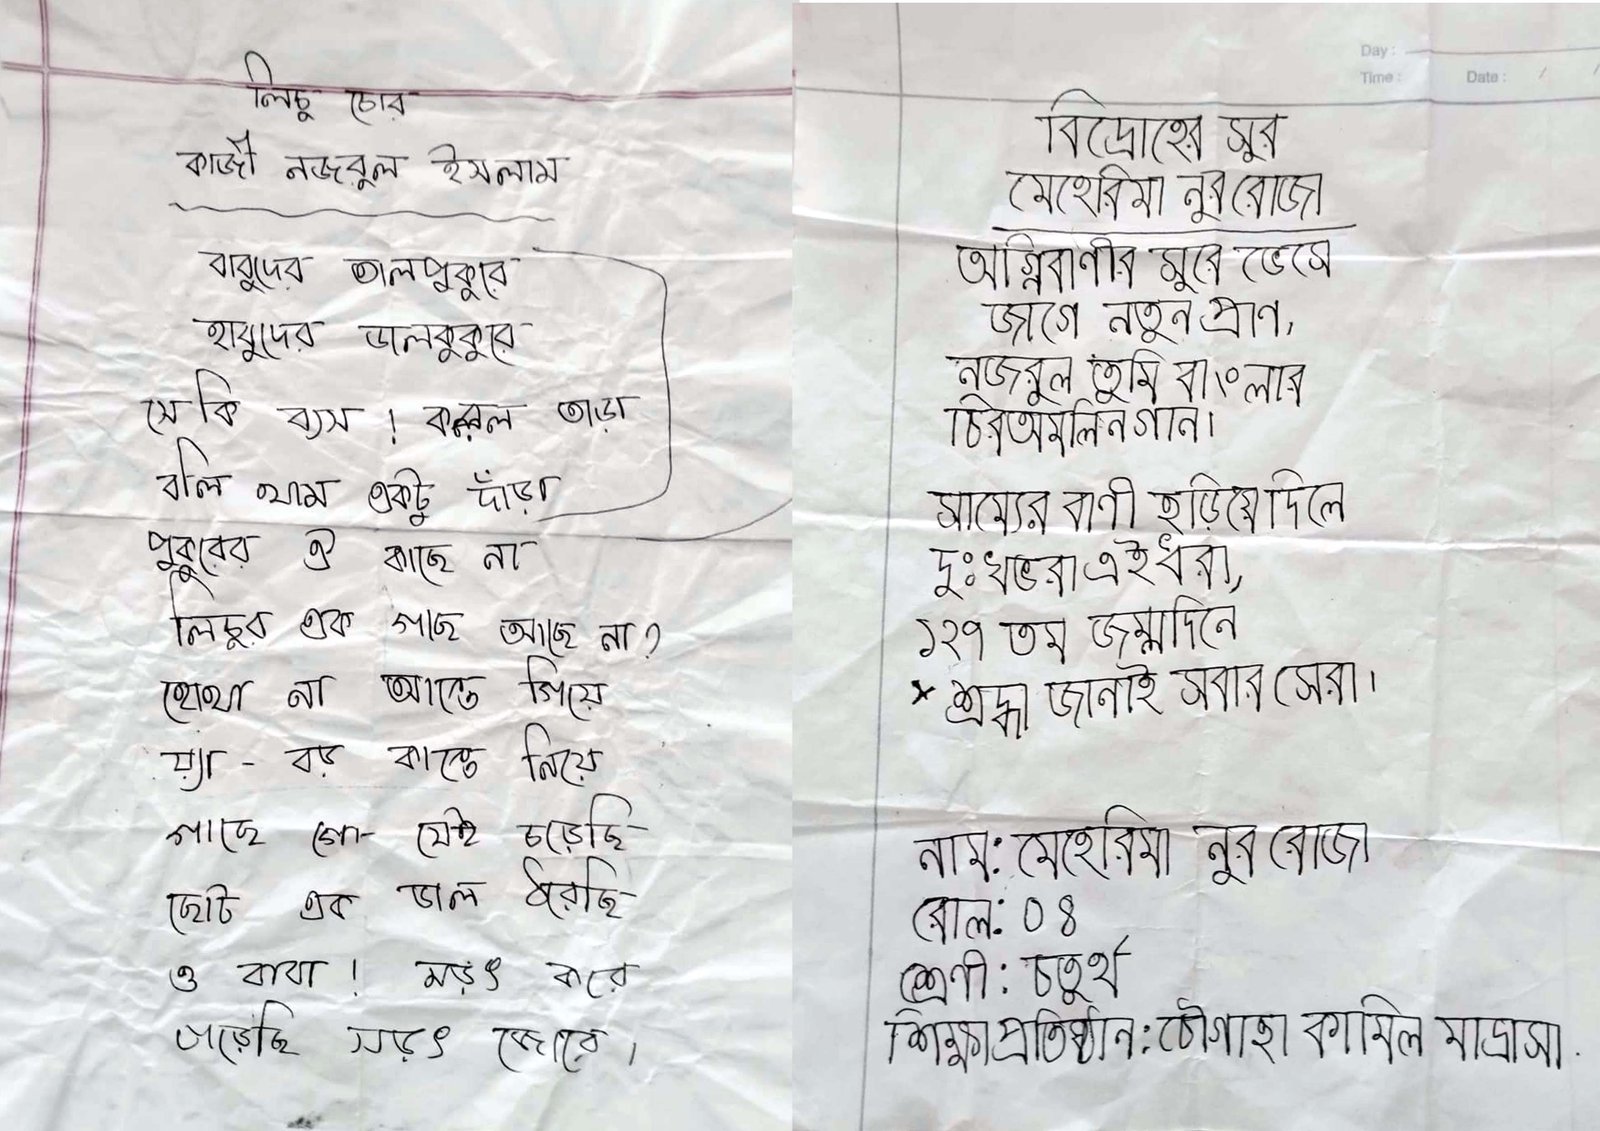 লিচু চোর
কাজী নজরুল ইসলাম
বাবুদের তালপুকুরে
হাবুদের ডালকুকুরে
সে কি ব্যস ! করল তাড়া
বলি থাম একটু দাঁড়া
পুকুরের ঐ কাছে না
লিচুর এক গাছ আছে না?
হোথা না আস্তে গিয়ে
য়্যা - বড় কাস্তে নিয়ে
গাছে গো- যেই চড়েছি
ছোট এক ডাল ধরেছি
ও বাবা ! মড়াৎ করে
পড়েছি সড়াৎ জোরে।
Day :
Time : Date : / /
বিদ্রোহের সুর
মেহেরিমা নুর রোজা
অগ্নিবাণীর সুরে ভেসে
জাগে নতুন প্রাণ,
নজরুল তুমি বাংলার
চিরঅমলিন গান।
সাম্যের বাণী ছড়িয়ে দিলে
দুঃখভরা এই ধরা,
১২৭ তম জন্মদিনে
* শ্রদ্ধা জানাই সবার সেরা।
নাম: মেহেরিমা নুর রোজা
রোল: ০৪
শ্রেণী : চতুর্থ
শিক্ষা প্রতিষ্ঠান: চৌগাছা কামিল মাদ্রাসা.